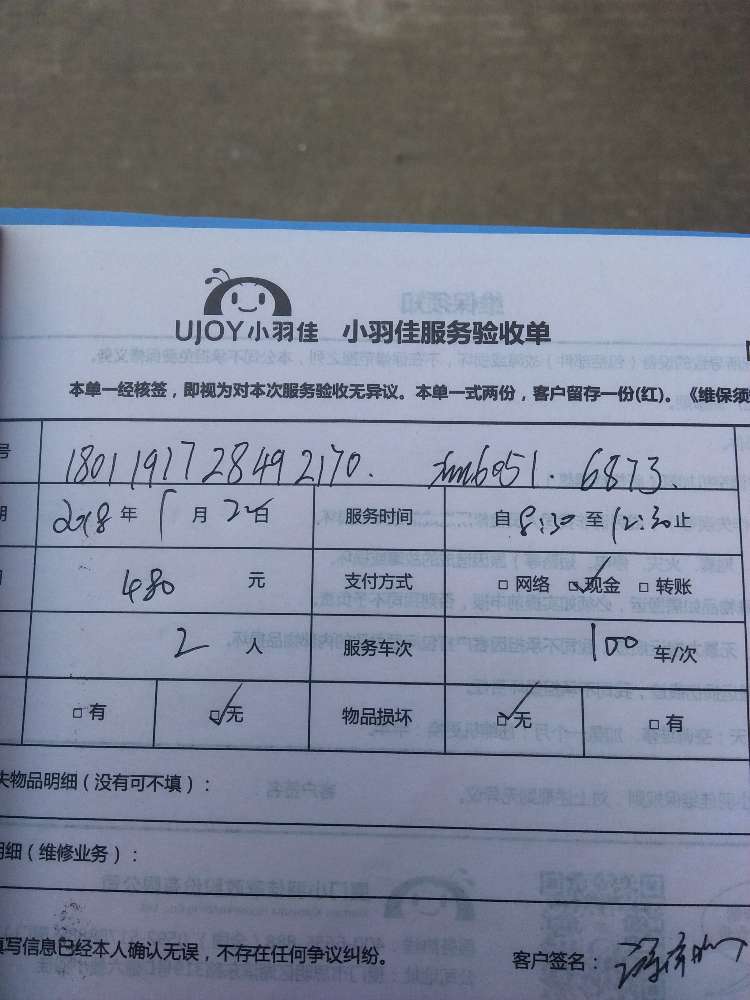 UJOY小羽佳 小羽佳服务验收单
本单一经核签，即视为对本次服务验收无异议。本单一式两份，客户留存一份(红)。《维保须
号 180119172849 2170. 6051. 6873.
期 2018 年 1 月 2 日 服务时间 自 8:30 至 12:30 止
480 元 支付方式 □ 网络 ☑ 现金 □ 转账
2 人 服务车次 100 车/次
□ 有 ☑ 无 物品损坏 ☑ 无 □ 有
失物品明细（没有可不填）：
明细（维修业务）：
填写信息已经本人确认无误，不存在任何争议纠纷。 客户签名：